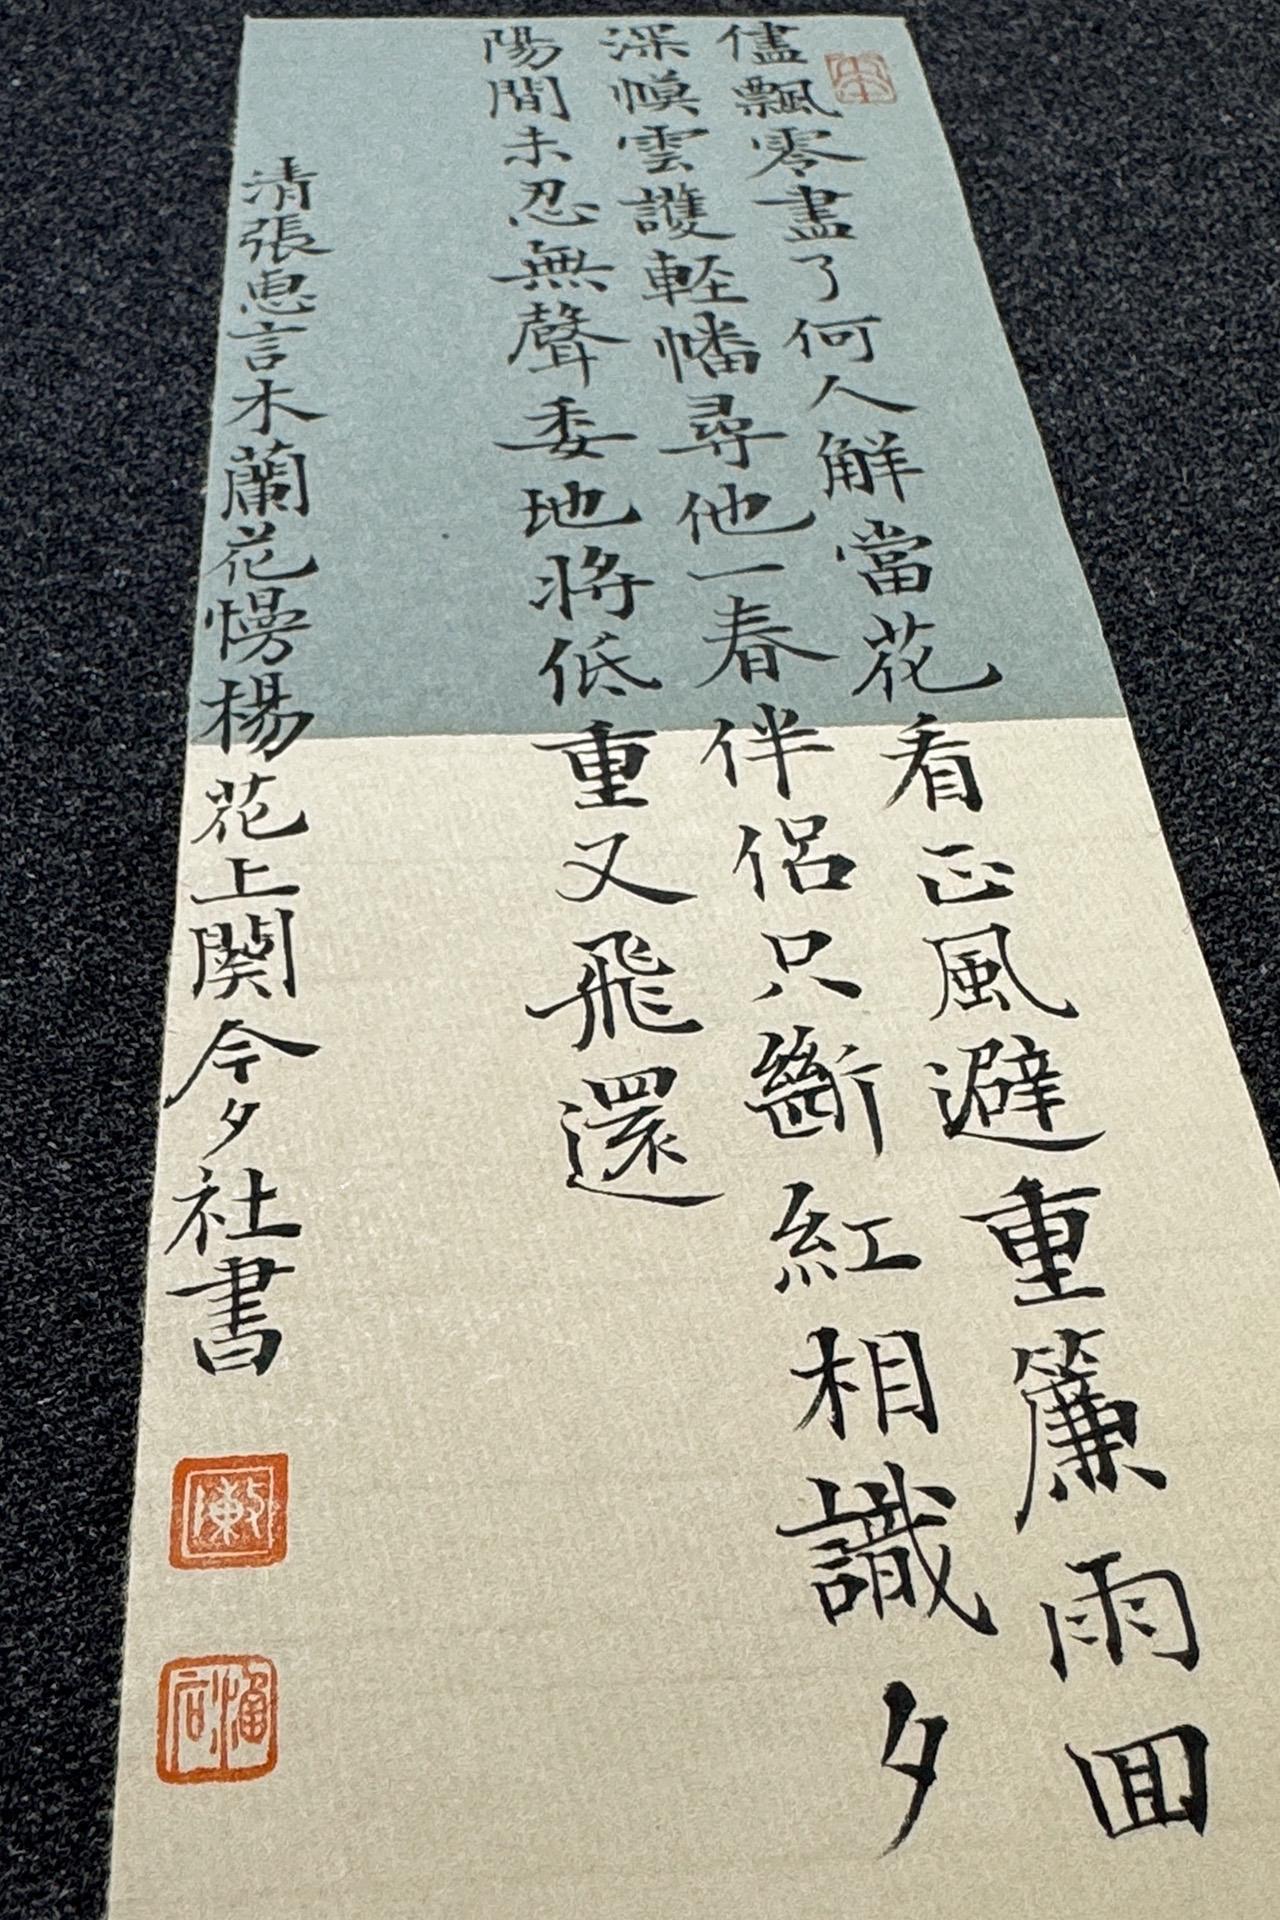 儘飄零盡了何人解當花看正風避重簾雨回
深幙雲護輕幡尋他一春伴侶只斷紅相識夕
陽間未忍無聲委地將低重又飛還
清張惠言木蘭花慢楊花上闋今夕社書